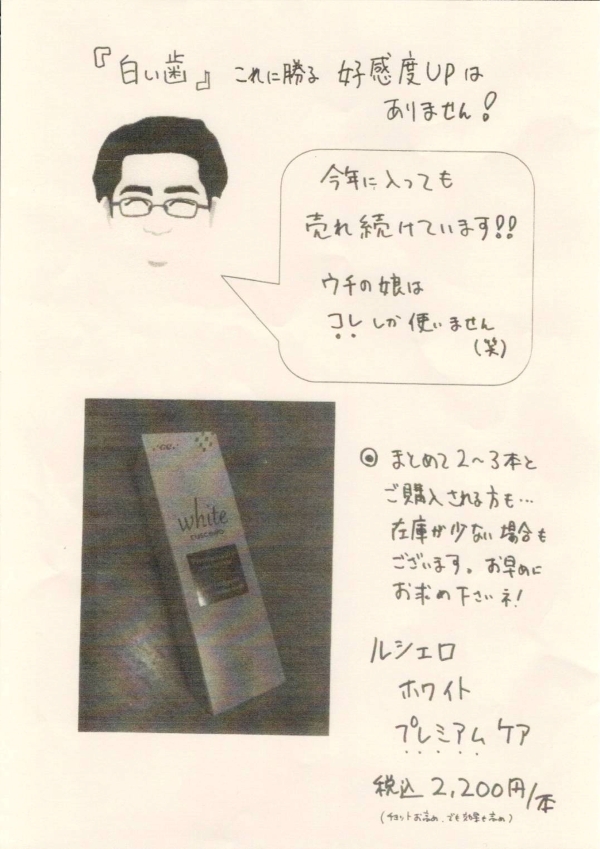 『白い歯』これに勝る 好感度UPは
ありません!
今年に入っても
売れ続けています!!
ウチの娘は
コレしか使いません
(笑)
white
◎ まとめて2〜3本と
ご購入される方も…
在庫が少ない場合も
ございます。お早めに
お求め下さいネ!
ルシェロ
ホワイト
プレミアムケア
税込 2,200円/本
(チョットお高め、でも効果も高め)